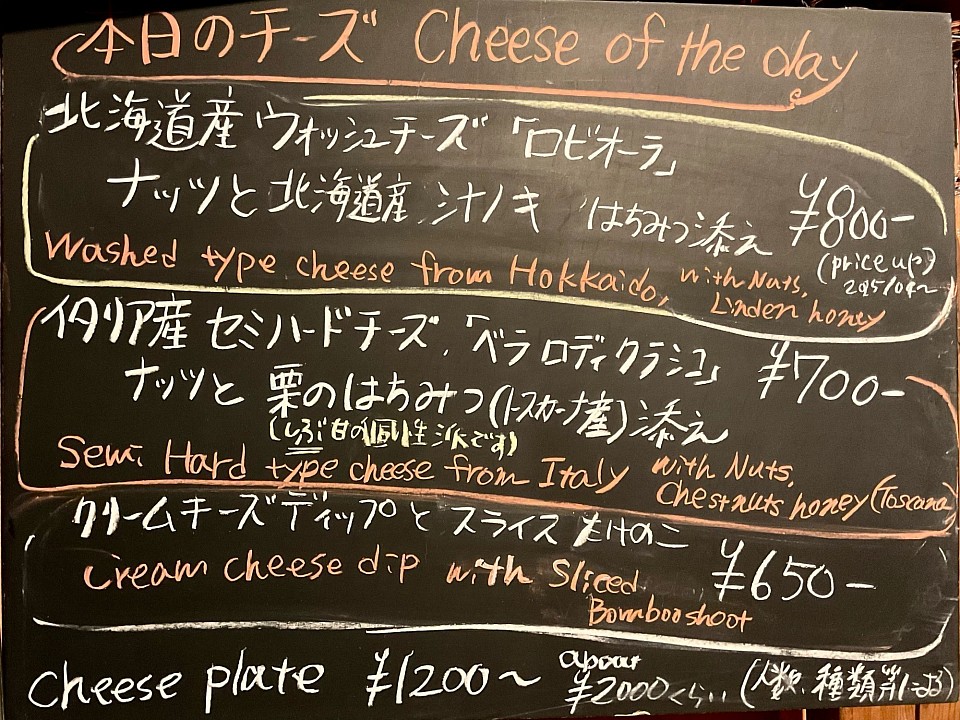 本日のチーズ Cheese of the day
北海道産 ウォッシュチーズ 「ロビオーラ」
ナッツと北海道産 シナノキ はちみつ添え ¥800-
(price up)
2025/04~
Washed type cheese from Hokkaido, with Nuts,
Linden honey
イタリア産 セミハードチーズ 「ベラ ロディ クラシコ」 ¥700-
ナッツと 栗のはちみつ(トスカーナ産)添え
(しぶ甘の個性派です)
Semi Hard type cheese from Italy with Nuts,
Chestnuts honey (Toscana)
クリームチーズディップと スライス たけのこ
Cream cheese dip with Sliced ¥650-
Bombooshoot
Cheese plate ¥1200~ about ¥2000くらい (人数、種類等による)